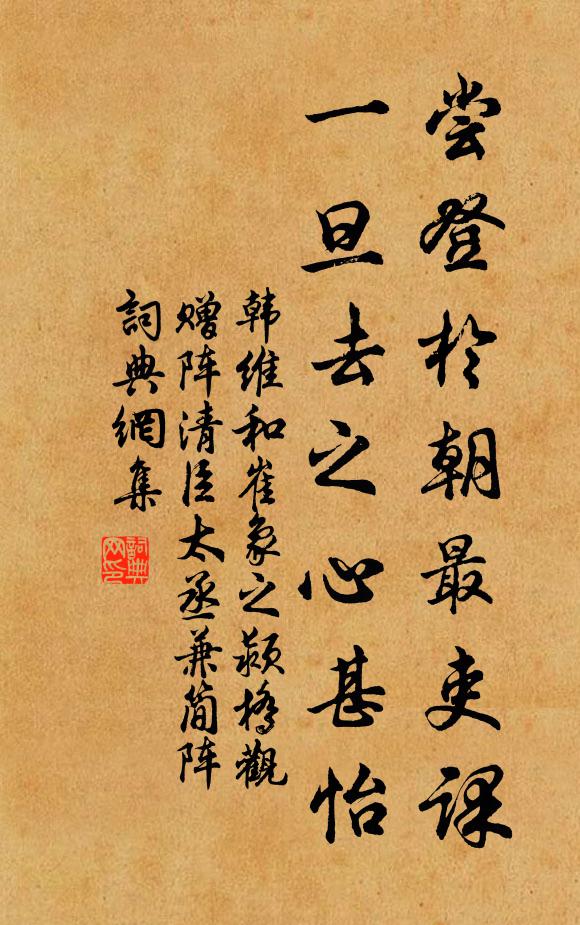 尝登於朝最吏课
一旦去之心甚怡
韩维和崔象之颍桥觀
赠阵清臣太丞兼简阵
詞典網集
詞典
网印